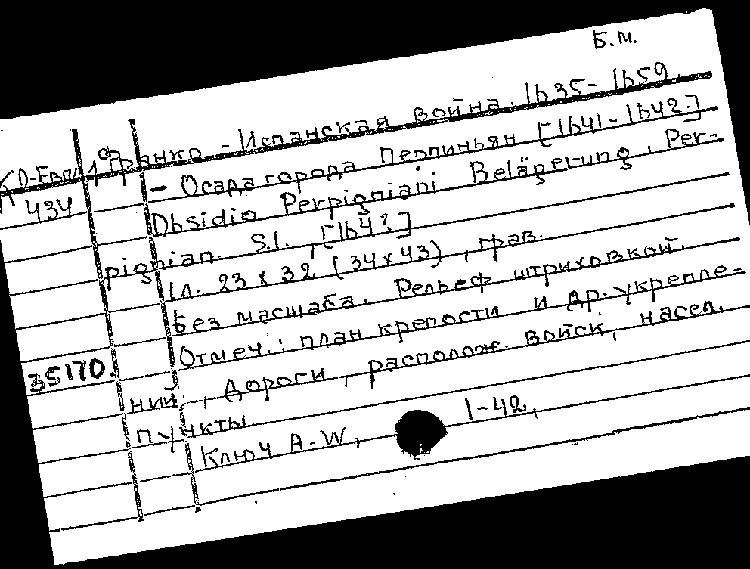 Б.м.
Франко-Испанская война. 1635-1659.
434 - Осада города Перпиньян [1641-1642]
Obsidio Perpigniani Belägerung. Per-
pignian S.l., [164?]
1л. 23 x 32 (34x43), грав.
Без масштаба. Рельеф штриховкой.
Отмеч.: план крепости и др. укрепле-
35170. ний, дороги, располож. войск, насел.
пункты
Ключ A-W, 1-42,